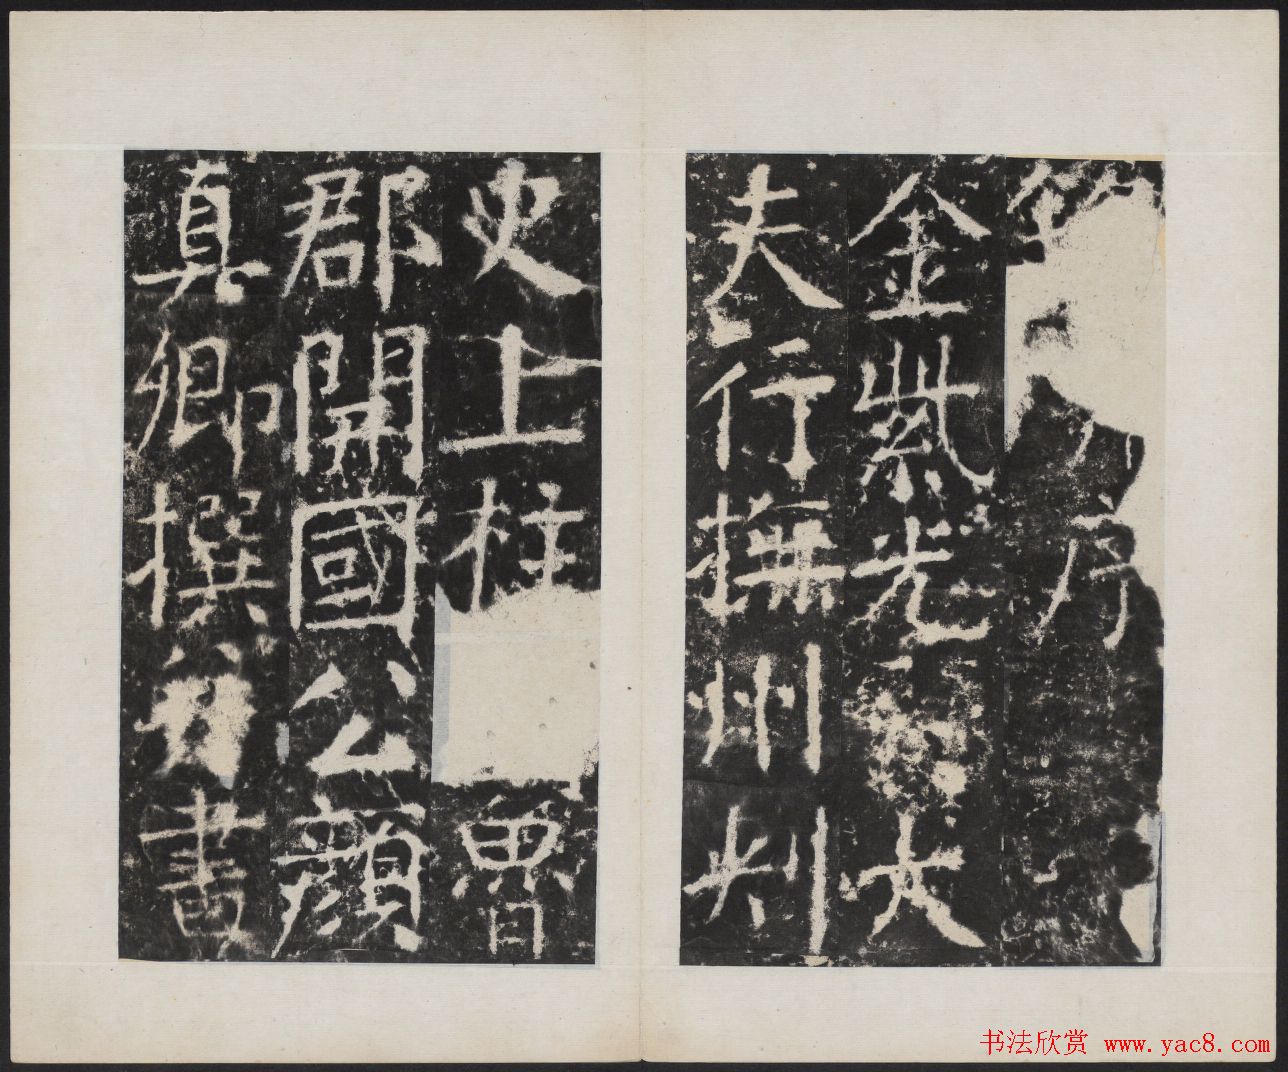 序
金紫光大
夫行撫州刺
史上柱魯
郡開國公顏
真卿撰并書
书法欣赏 www.yac8.com